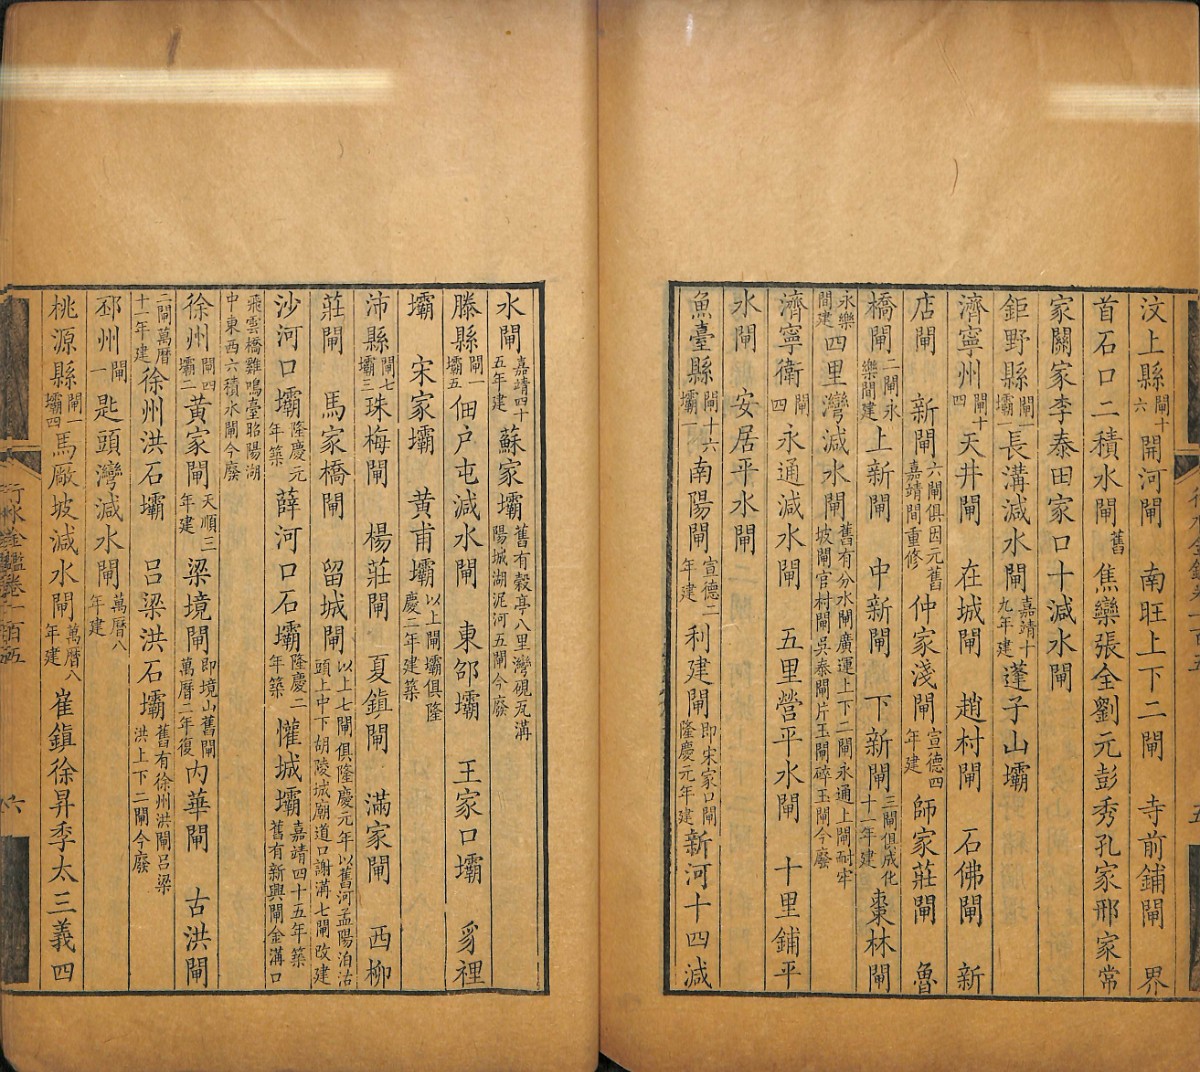 汶上縣閘十六開河閘 南旺上下二閘 寺前鋪閘 界
首石口二積水閘舊 焦欒張全劉元彭秀孔家邢家常
家關家李泰田家口十減水閘
鉅野縣閘一壩一長溝減水閘嘉靖十九年建蓬子山壩
濟寧州閘十四天井閘 在城閘 趙村閘 石佛閘 新
店閘 新閘六閘俱因元舊嘉靖間重修仲家淺閘宣德四年建師家莊閘 魯
橋閘二閘永樂間建上新閘 中新閘 下新閘三閘俱成化十一年建棗林閘
永樂間建四里灣減水閘舊有分水閘廣運上下二閘永通上閘耐牢坡閘官村閘吳泰閘片玉閘碎玉閘今廢
濟寧衛閘四永通減水閘 五里營平水閘 十里鋪平
水閘 安居平水閘
魚臺縣閘十六壩一南陽閘宣德二年建利建閘即宋家口閘隆慶元年建新河十四減
水閘嘉靖四十五年建蘇家壩舊有穀亭八里灣硯瓦溝陽城湖泥河五閘今廢
滕縣閘一壩五佃戶屯減水閘 東邵壩 王家口壩 豸裡
壩 宋家壩 黃甫壩以上閘壩俱隆慶二年建築
沛縣閘七壩三珠梅閘 楊莊閘 夏鎮閘 滿家閘 西柳
莊閘 馬家橋閘 留城閘以上七閘俱隆慶元年以舊河孟陽泊沽頭上中下胡陵城廟道口謝溝七閘改建
沙河口壩隆慶元年築薛河口石壩隆慶二年築懽城壩嘉靖四十五年築舊有新興閘金溝口
飛雲橋雞鳴臺昭陽湖中東西六積水閘今廢
徐州閘四壩二黃家閘天順三年建梁境閘即境山舊閘萬曆二年復內華閘 古洪閘
二閘萬曆十一年建徐州洪石壩 呂梁洪石壩舊有徐州洪閘呂梁洪上下二閘今廢
邳州閘一匙頭灣減水閘萬曆八年建
桃源縣閘一壩四馬廠坡減水閘萬曆八年建崔鎮徐昇季太三義四
行水金鑑卷一百五
六